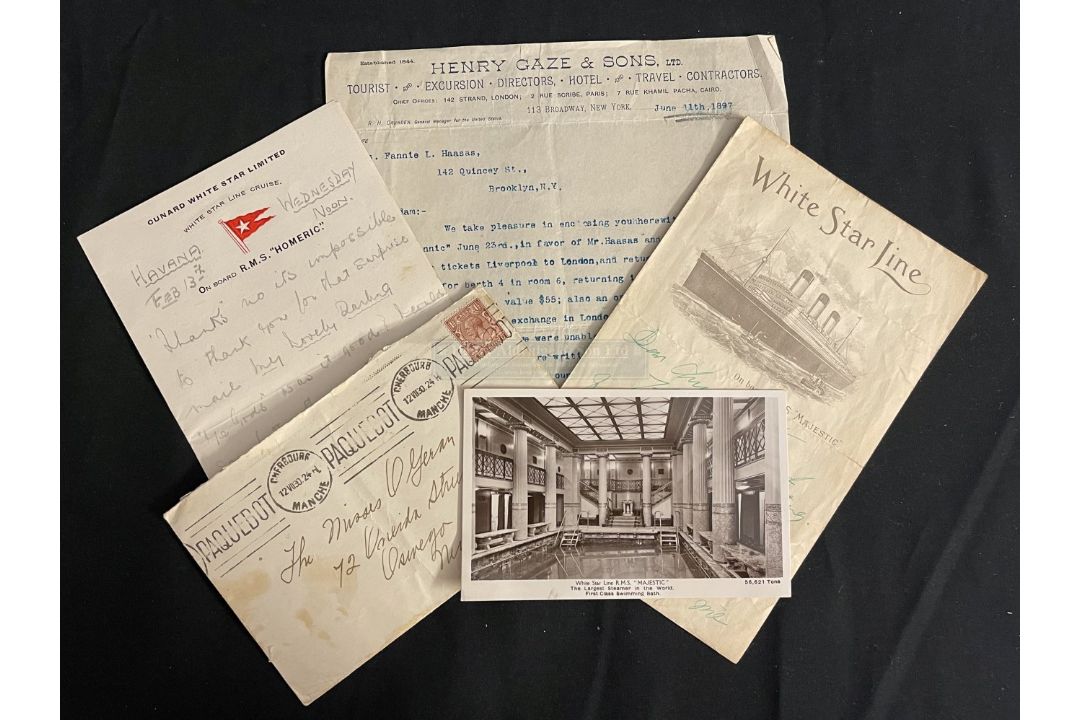 Established 1844.
HENRY GAZE & SONS, LTD.
TOURIST · AND · EXCURSION · DIRECTORS, · HOTEL · AND · TRAVEL · CONTRACTORS.
CHIEF OFFICES: 142 STRAND, LONDON; 2 RUE SCRIBE, PARIS; 7 RUE KHAMIL PACHA, CAIRO.
113 BROADWAY, NEW YORK, June 11th, 1897
General Manager for the United States.
Fannie L. Haasas,
142 Quincey St.,
Brooklyn, N.Y.
am:-
We take pleasure in enclosing you herewi
nnic" June 23rd., in favor of Mr. Haasas an
tickets Liverpool to London, and retu
for berth 4 in room 6, returning
value $55; also an o
exchange in London
were unabl
re writi
our
CUNARD WHITE STAR LIMITED
WHITE STAR LINE CRUISE.
ON BOARD R.M.S. "HOMERIC."
HAVANA
FEB 13th
WEDNESDAY
NOON.
"Thanks" no its impossible
to thank you for that surprise
mail my lovely Darling
was it good to
White Star Line
On b
S. "MAJESTIC"
Dear
PAQUEBOT
CHERBOURG
12 VII 30. 24-H
MANCHE
PAQUEBOT
CHERBOURG
12 VII 30. 24-H
MANCHE
PAQ
The Misses O'Geran
72
Oswego
White Star Line R.M.S. "MAJESTIC"
The Largest Steamer in the World.
First Class Swimming Bath.
56,621 Tons